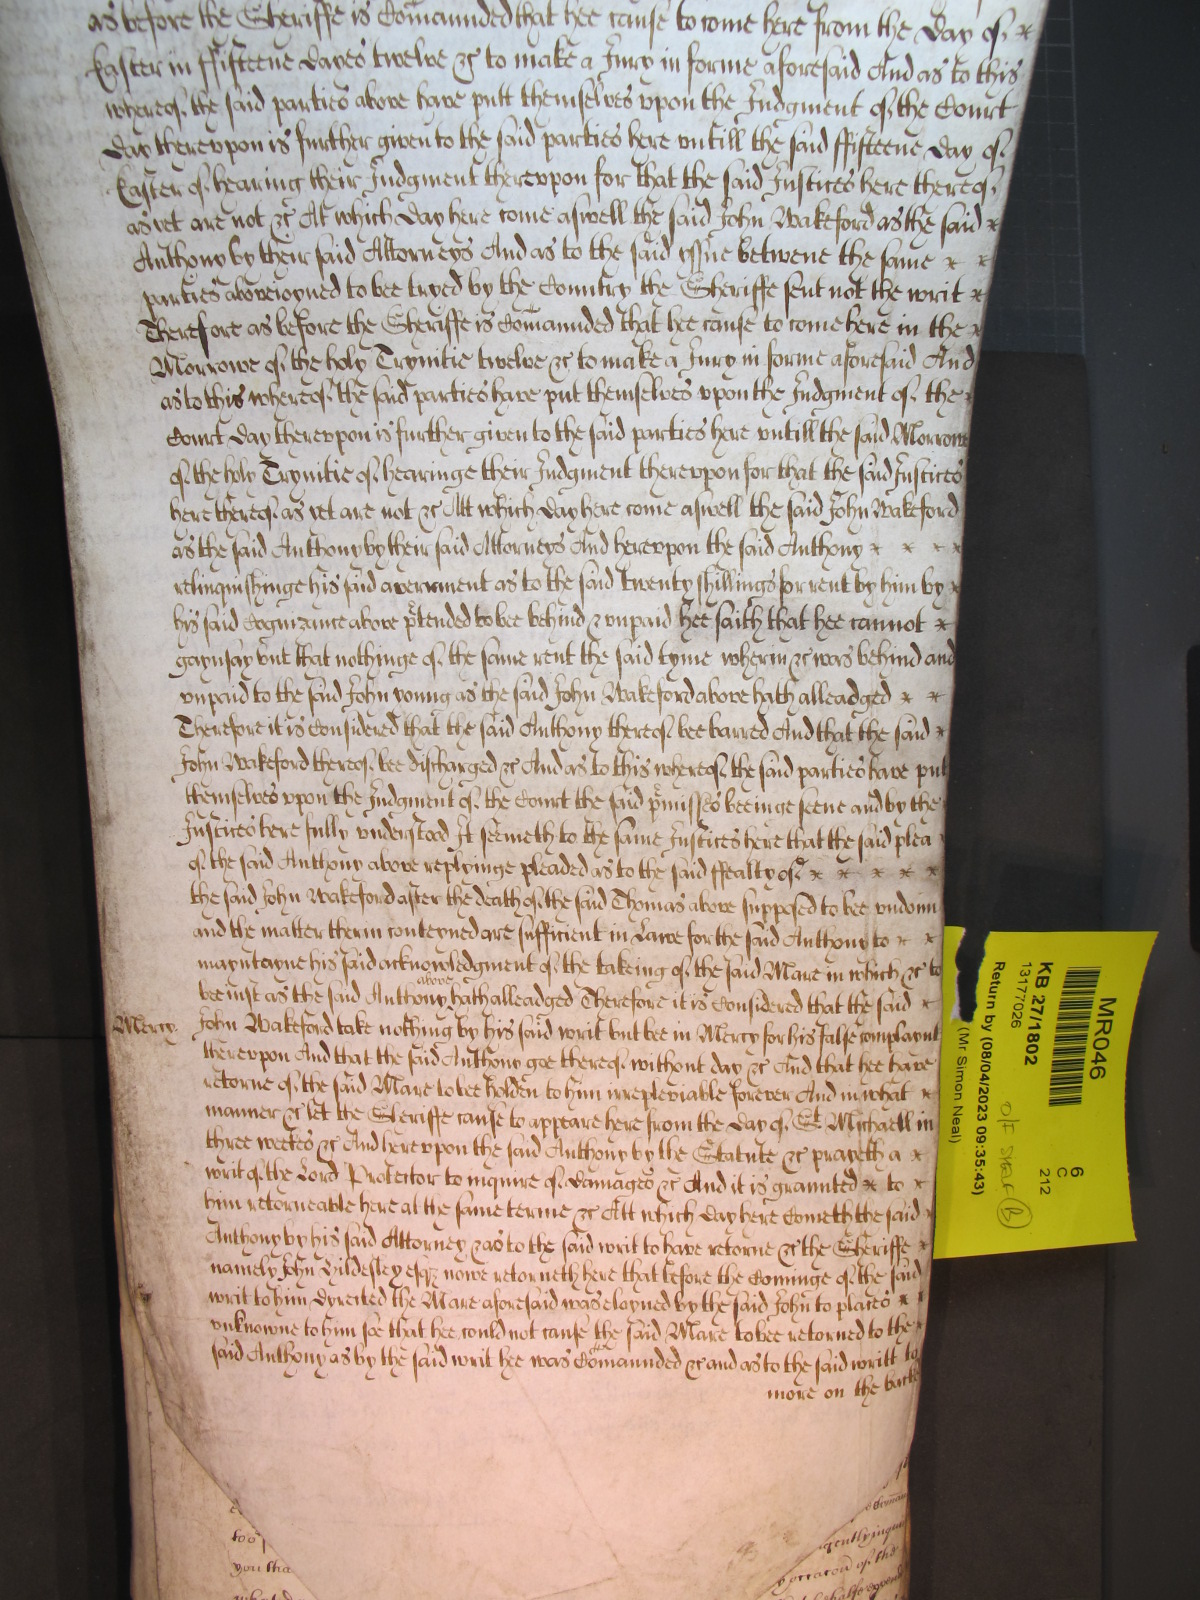 as before the Sheriffe is Comaunded that hee cause to come here from the Day of
Easter in ffifteene dayes twelve &c to make a Jury in forme aforesaid And as to this
whereof the said parties above have putt themselves vpon the Judgment of the Court
Day therevpon is further given to the said parties here vntill the said ffifteene Day of
Easter of hearing their Judgment therevpon for that the said Justices here thereof
as yet are not &c At which Day here come aswell the said John Wakeford as the said
Anthony by their said Attorneys And as to the said yssue betwene the same
parties above ioyned to bee tryed by the Country the Sheriffe sent not the writ
Therefore as before the Sheriffe is Comaunded that hee cause to come here in the
Morrowe of the holy Trynitie twelve &c to make a Jury in forme aforesaid And
as to this whereof the said parties have put themselves vpon the Judgment of the
Court Day therevpon is further given to the said parties here vntill the said Morrowe
of the holy Trynitie of hearinge their Judgment therevpon for that the said Justices
here thereof as yet are not &c Att which Day here come aswell the said John Wakeford
as the said Anthony by their said Attorneys And herevpon the said Anthony
relinquishinge his said averrment as to the said twenty shillings for rent by him by
his said Cognizance above ptended to bee behind & vnpaid hee saith that hee cannot
gaynsay but that nothinge of the same rent the said tyme wherin &c was behind and
vnpaid to the said John Young as the said John Wakeford above hath alleadged
Therefore it is Considered that the said Anthony thereof bee barred And that the said
John Wakeford thereof bee discharged &c And as to this whereof the said parties have put
themselves vpon the Judgment of the Court the said pmisses beeinge seene and by the
Justices here fully vnderstood It seemeth to the same Justices here that the said plea
of the said Anthony above replyinge pleaded as to the said ffealty of
the said John Wakeford after the death of the said Thomas above supposed to bee vndonn
and the matter therin conteyned are sufficient in Lawe for the said Anthony to
mayntayne his said acknowledgment of the takeing of the said Mare in which &c to
bee iust as the said Anthony above hath alleadged Therefore it is Considered that the said
Mercy John Wakeford take nothing by his said writ but bee in Mercy for his false complaynt
therevpon And that the said Anthony goe thereof without day &c And that hee have
retorne of the said Mare to bee holden to him irrepleviable forever And in what
manner &c let the Sheriffe cause to appeare here from the Day of St Michaell in
three weekes &c And herevpon the said Anthony by the Statute &c prayeth a
writ of the Lord Protector to inquire of damages &c And it is graunted to
him retorneable here at the same terme &c Att which Day here Cometh the said
Anthony by his said Attorney & as to the said writ to have retorne &c the Sheriffe
namely John Lildesley esqr nowe retorneth here that before the Cominge of the said
writ to him dyrected the Mare aforesaid was eloyned by the said John to places
vnknowne to him soe that hee could not cause the said Mare to bee retorned to the
said Anthony as by the said writ hee was Comaunded &c and as to the said writt to
more on the backe
MR046
KB 27/1802
13177026
Return by (08/04/2023 09:35:43)
(Mr Simon Neal)
6
C
212
too
you tha
of the